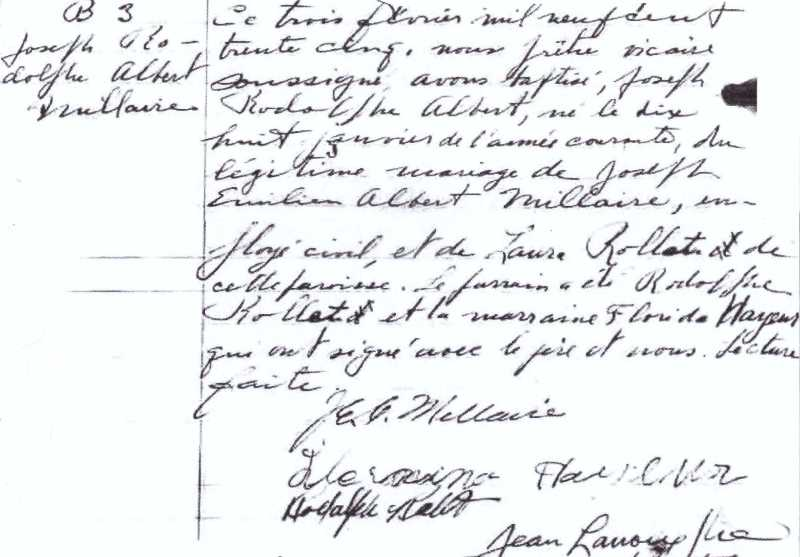 B 3
Joseph Ro-
dolphe Albert
Millaire
Ce trois février mil neuf cent
trente cinq, nous prêtre vicaire
soussigné, avons baptisé, Joseph
Rodolphe Albert, né le dix
huit janvier de l'année courante, du
légitime mariage de Joseph
Emilien Albert Millaire, em-
ployé civil, et de Laura de
cette paroisse. Le parrain a été Rodolphe
et la marraine Florida
qui ont signé avec le père et nous. Lecture
faite.
Millaire
Rodolphe
Jean ptre